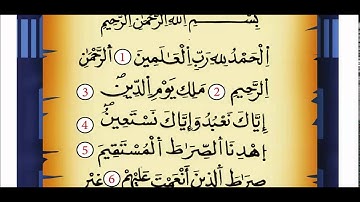 بِسْمِ اللهِ الرَّحْمٰنِ الرَّحِيْمِ
اَلْحَمْدُ لِلهِ رَبِّ الْعَالَمِيْنَ ① اَلرَّحْمٰنِ
الرَّحِيْمِ ② مَلِكِ يَوْمِ الدِّيْنِ ③
اِيَّاكَ نَعْبُدُ وَاِيَّاكَ نَسْتَعِيْنُ ④
اِهْدِنَا الصِّرَاطَ الْمُسْتَقِيْمَ ⑤
صِرَاطَ الَّذِيْنَ اَنْعَمْتَ عَلَيْهِمْ ⑥ غَيْرِ